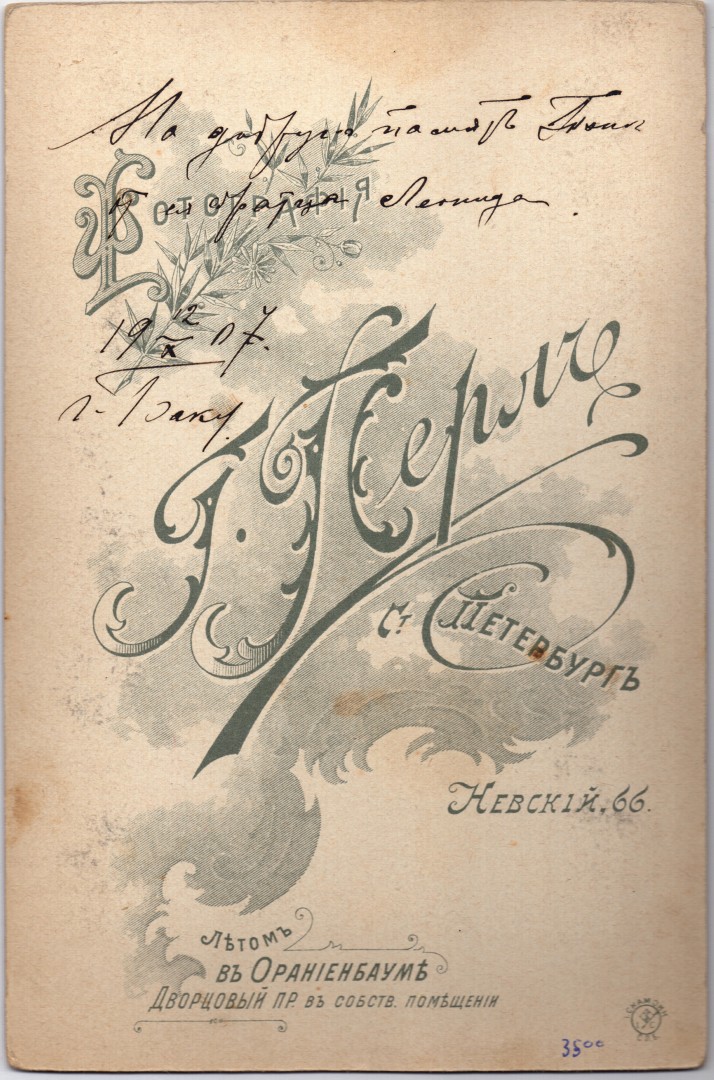 На добрую память
от братца Леонида.
Фотография
19 12/X 07.
г. Баку
Г. Перлъ
Ст Петербургъ
Невскій, 66.
Лѣтомъ
въ Ораніенбаумѣ
Дворцовый пр. въ собств. помѣщеніи
3500